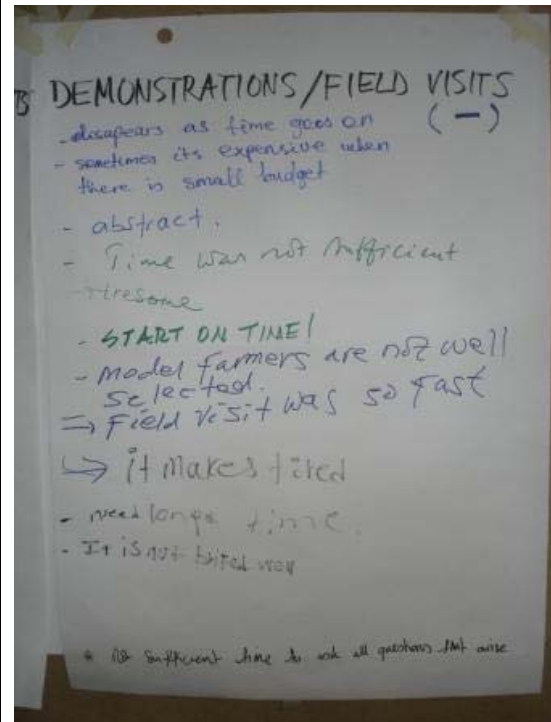 DEMONSTRATIONS/FIELD VISITS
(-)
- disapears as time goes on
- sometimes its expensive when
there is small budget
- abstract.
- Time was not sufficient
- tiresome
- START ON TIME!
- Model farmers are not well
selected.
⇒ Field visit was so fast
↳ it makes tired
- need longe time.
- It is not
* Not sufficient time to ask all questions that arise